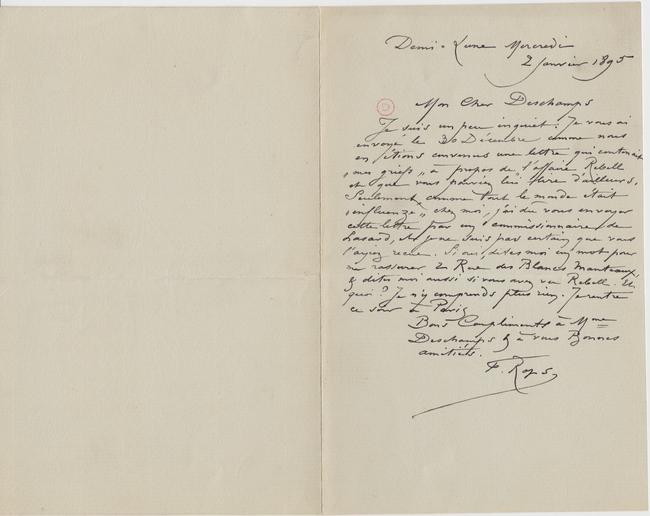 Demi-Lune Mercredi
2 janvier 1895
Mon Cher Deschamps
Je suis un peu inquiet : Je vous ai
envoyé le 30 Décembre comme nous
en étions convenus une lettre qui contenait
„mes griefs„ à propos de l'affaire Rebell
et que vous pouviez lui lire d'ailleurs.
Seulement comme tout le monde était
„influenzé„ chez moi, j'ai dû vous envoyer
cette lettre par un commissionnaire de
hasard, & je ne suis pas certain que vous
l'ayiez reçue. Si oui, dites moi un mot pour
me rassurer, 21 Rue des Blancs Manteaux,
& dites moi aussi si vous avez vu Rebell. Et
quoi? Je n'y comprends plus rien. Je rentre
ce soir à Paris
Bons Compliments à Mme
Deschamps & à vous Bonnes
amitiés.
F. Rops